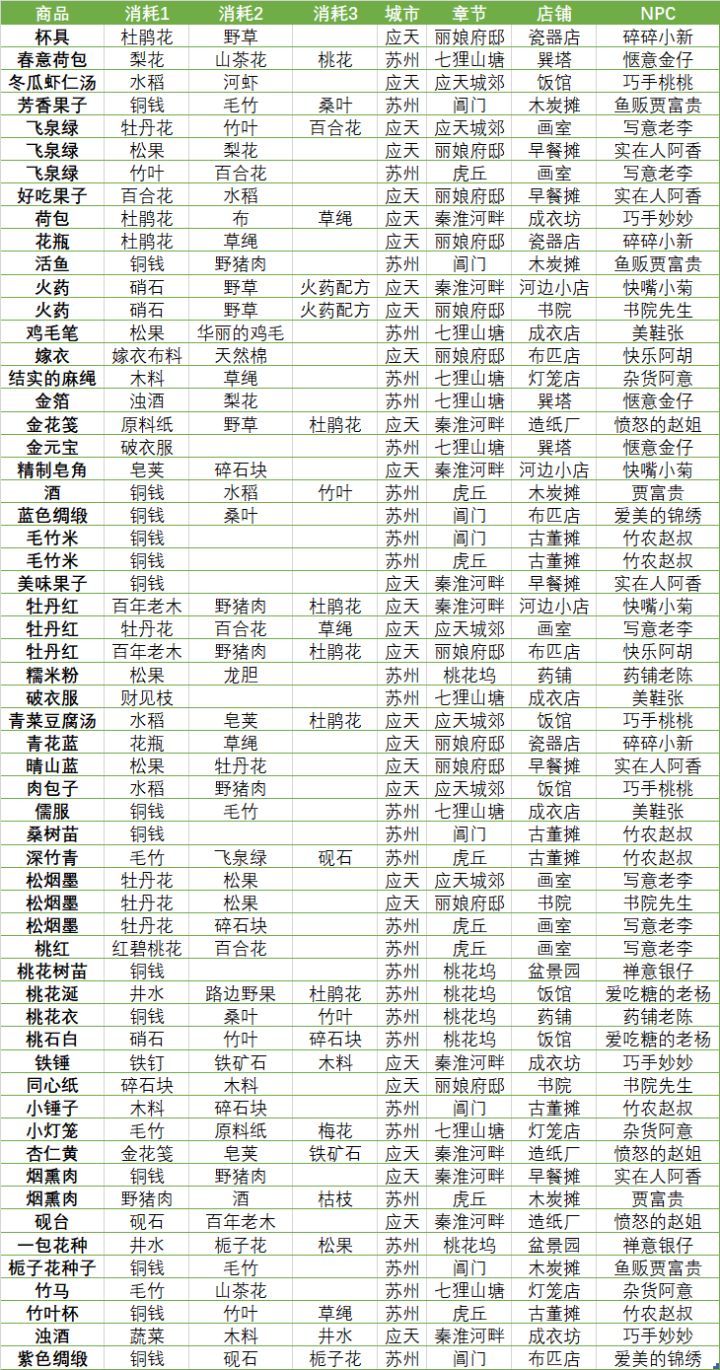 商品 消耗1 消耗2 消耗3 城市 章节 店铺 NPC
杯具 杜鹃花 野草 应天 丽娘府邸 瓷器店 碎碎小新
春意荷包 梨花 山茶花 桃花 苏州 七狸山塘 巽塔 惬意金仔
冬瓜虾仁汤 水稻 河虾 应天 应天城郊 饭馆 巧手桃桃
芳香果子 铜钱 毛竹 桑叶 苏州 阊门 木炭摊 鱼贩贾富贵
飞泉绿 牡丹花 竹叶 百合花 应天 应天城郊 画室 写意老李
飞泉绿 松果 梨花 应天 丽娘府邸 早餐摊 实在人阿香
飞泉绿 竹叶 百合花 苏州 虎丘 画室 写意老李
好吃果子 百合花 水稻 应天 丽娘府邸 早餐摊 实在人阿香
荷包 杜鹃花 布 草绳 应天 秦淮河畔 成衣坊 巧手妙妙
花瓶 杜鹃花 草绳 应天 丽娘府邸 瓷器店 碎碎小新
活鱼 铜钱 野猪肉 苏州 阊门 木炭摊 鱼贩贾富贵
火药 硝石 野草 火药配方 应天 秦淮河畔 河边小店 快嘴小菊
火药 硝石 野草 火药配方 应天 丽娘府邸 书院 书院先生
鸡毛笔 松果 华丽的鸡毛 苏州 七狸山塘 成衣店 美鞋张
嫁衣 嫁衣布料 天然棉 应天 丽娘府邸 布匹店 快乐阿胡
结实的麻绳 木料 草绳 苏州 七狸山塘 灯笼店 杂货阿意
金箔 浊酒 梨花 苏州 七狸山塘 巽塔 惬意金仔
金花笺 原料纸 野草 杜鹃花 应天 秦淮河畔 造纸厂 愤怒的赵姐
金元宝 破衣服 苏州 七狸山塘 巽塔 惬意金仔
精制皂角 皂荚 碎石块 应天 秦淮河畔 河边小店 快嘴小菊
酒 铜钱 水稻 竹叶 苏州 虎丘 木炭摊 贾富贵
蓝色绸缎 铜钱 桑叶 苏州 阊门 布匹店 爱美的锦绣
毛竹米 铜钱 苏州 阊门 古董摊 竹农赵叔
毛竹米 铜钱 苏州 虎丘 古董摊 竹农赵叔
美味果子 铜钱 应天 秦淮河畔 早餐摊 实在人阿香
牡丹红 百年老木 野猪肉 杜鹃花 应天 秦淮河畔 河边小店 快嘴小菊
牡丹红 牡丹花 百合花 草绳 应天 应天城郊 画室 写意老李
牡丹红 百年老木 野猪肉 杜鹃花 应天 丽娘府邸 布匹店 快乐阿胡
糯米粉 松果 龙胆 苏州 桃花坞 药铺 药铺老陈
破衣服 财见枝 苏州 七狸山塘 成衣店 美鞋张
青菜豆腐汤 水稻 皂荚 杜鹃花 应天 应天城郊 饭馆 巧手桃桃
青花蓝 花瓶 草绳 应天 丽娘府邸 瓷器店 碎碎小新
晴山蓝 松果 牡丹花 应天 丽娘府邸 早餐摊 实在人阿香
肉包子 水稻 野猪肉 应天 应天城郊 饭馆 巧手桃桃
儒服 铜钱 毛竹 苏州 七狸山塘 成衣店 美鞋张
桑树苗 铜钱 苏州 阊门 古董摊 竹农赵叔
深竹青 毛竹 飞泉绿 砚石 苏州 虎丘 古董摊 竹农赵叔
松烟墨 牡丹花 松果 应天 应天城郊 画室 写意老李
松烟墨 牡丹花 松果 应天 丽娘府邸 书院 书院先生
松烟墨 牡丹花 碎石块 苏州 虎丘 画室 写意老李
桃红 红碧桃花 百合花 苏州 虎丘 画室 写意老李
桃花树苗 铜钱 苏州 桃花坞 盆景园 禅意银仔
桃花涎 井水 路边野果 杜鹃花 苏州 桃花坞 饭馆 爱吃糖的老杨
桃花衣 铜钱 桑叶 竹叶 苏州 桃花坞 药铺 药铺老陈
桃石白 硝石 竹叶 碎石块 苏州 桃花坞 饭馆 爱吃糖的老杨
铁锤 铁钉 铁矿石 木料 应天 秦淮河畔 成衣坊 巧手妙妙
同心纸 碎石块 木料 应天 丽娘府邸 书院 书院先生
小锤子 木料 碎石块 苏州 阊门 古董摊 竹农赵叔
小灯笼 毛竹 原料纸 梅花 苏州 七狸山塘 灯笼店 杂货阿意
杏仁黄 金花笺 皂荚 铁矿石 应天 秦淮河畔 造纸厂 愤怒的赵姐
烟熏肉 铜钱 野猪肉 应天 秦淮河畔 早餐摊 实在人阿香
烟熏肉 野猪肉 酒 枯枝 苏州 虎丘 木炭摊 贾富贵
砚台 砚石 百年老木 应天 秦淮河畔 造纸厂 愤怒的赵姐
一包花种 井水 栀子花 松果 苏州 桃花坞 盆景园 禅意银仔
栀子花种子 铜钱 毛竹 苏州 阊门 木炭摊 鱼贩贾富贵
竹马 毛竹 山茶花 苏州 七狸山塘 灯笼店 杂货阿意
竹叶杯 铜钱 竹叶 草绳 苏州 虎丘 古董摊 竹农赵叔
浊酒 蔬菜 木料 井水 应天 秦淮河畔 成衣坊 巧手妙妙
紫色绸缎 铜钱 砚石 栀子花 苏州 阊门 布匹店 爱美的锦绣